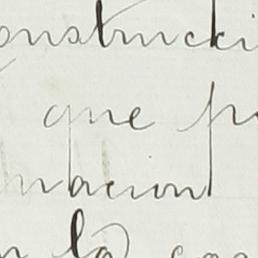 onstrucci
que p
macion
n la con